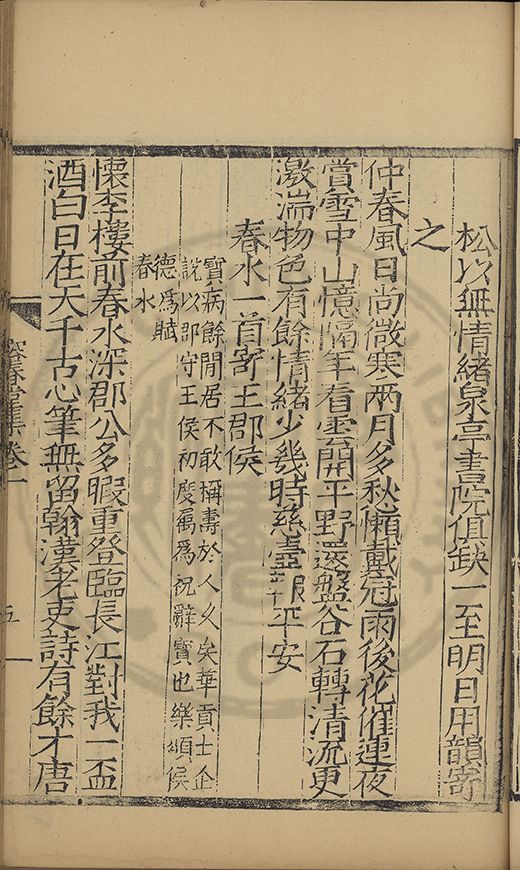 松以無情緒泉亭書院俱缺一至明日用韻寄
之
仲春風日尚微寒兩月多愁懶戴冠雨後花催連夜
賞雪中山憶隔年看雲開平野邃盤谷石轉清流更
激湍物色有餘情緒少幾時慈壼報平安
春水一首寄王郡侯
寳病餘閒居不敢稱壽於人久矣華貢士企
說以郡守王侯初度屬爲祝辭寳也樂頌侯
德爲賦
春水
懷李樓前春水深郡公多暇重登臨長江對我一盃
酒白日在天千古心筆無留翰漢老吏詩有餘才唐
容春堂集 卷一
五